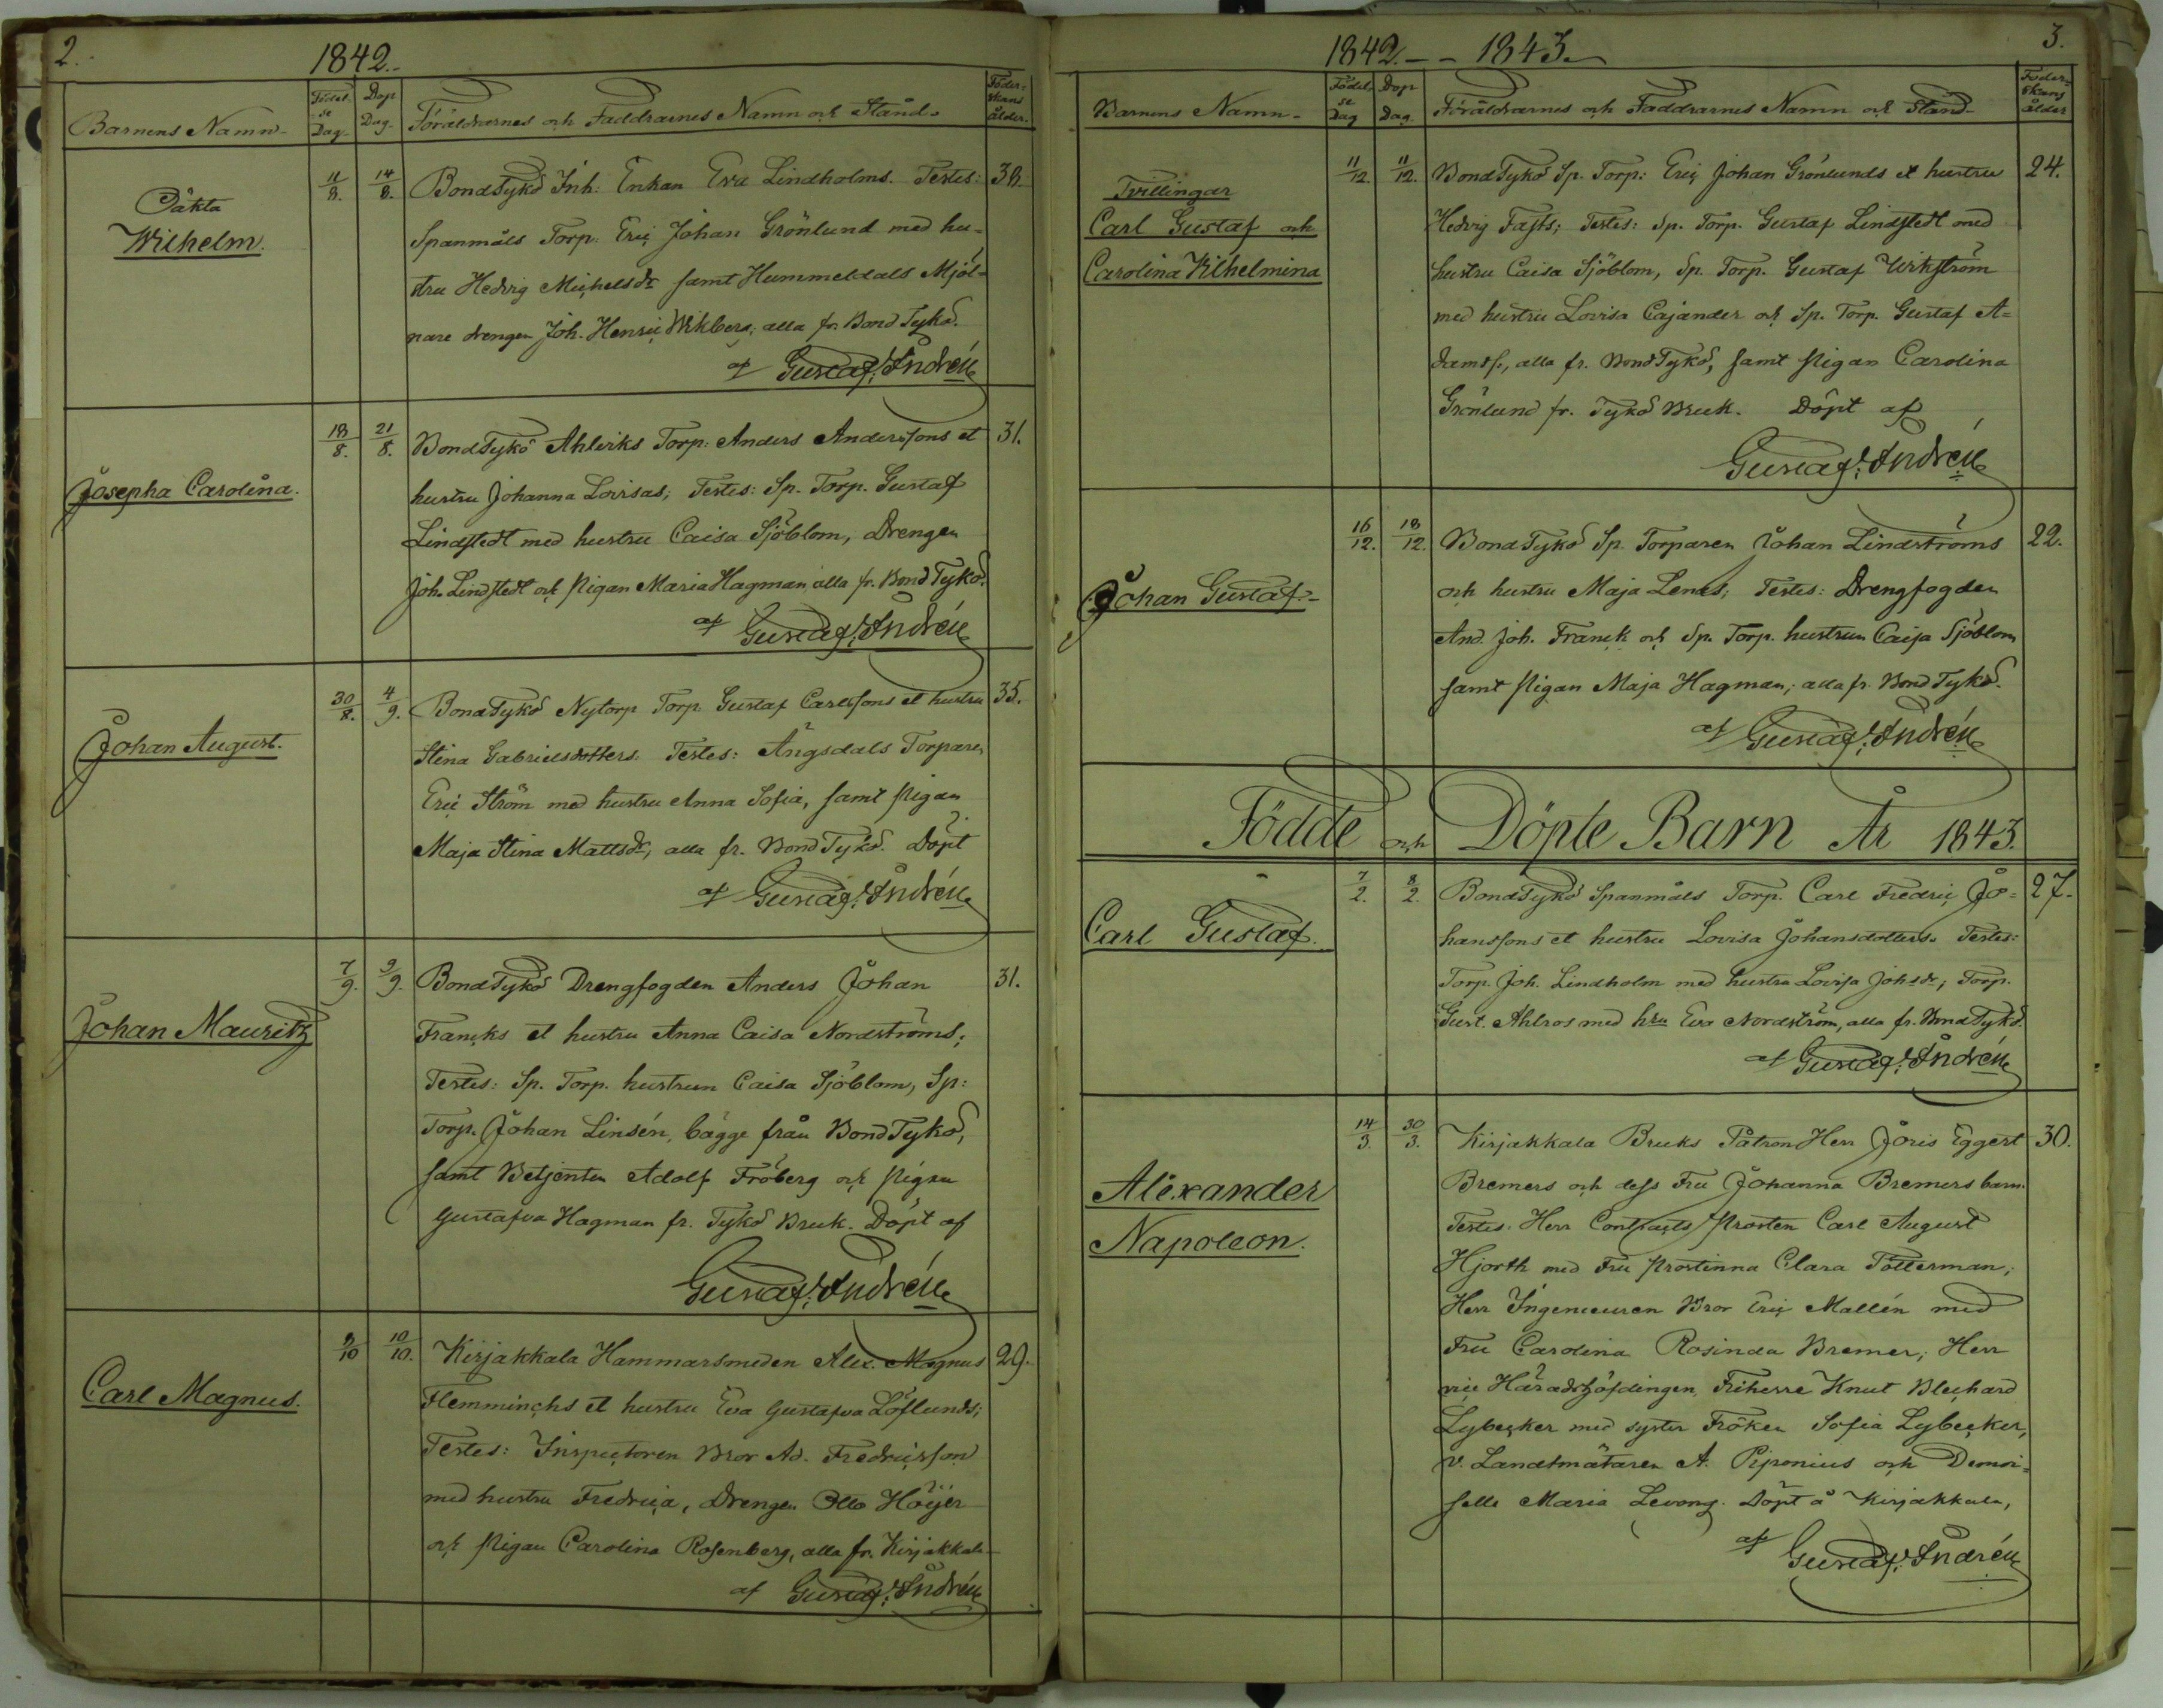 2.
1842.
Barnens Namn.
Födel-
se
Dag.
Dop
Dag.
Föräldrarnes och Faddrarnes Namn och Stånd.
Föder-
skans
ålder.
Oäkta
Wilhelm.
11/8.
14/8.
BondTykö Inh: Enkan Eva Lindholms. Testes:
38.
Spanmåls Torp: Eric Johan Grönlund med hu-
stru Hedvig Michelsdr samt Hummeldals Mjöl-
nare drengen Joh. Henric Wikberg; alla fr. BondTykö.
af Gustaf Andrén
Josepha Carolina.
18/8.
21/8.
BondTykö Ahlviks Torp: Anders Anderssons et
31.
hustru Johanna Lovisas; Testes: Sp. Torp. Gustaf
Lindstedt med hustru Caisa Sjöblom, Drengen
Joh. Lindstedt och Pigan Maria Hagman alla fr. BondTykö.
af Gustaf Andrén
Johan August.
30/8.
4/9.
BondTykö Nytorp Torp. Gustaf Carlssons et hustru
35.
Stina Gabrielsdotters. Testes: Ängsdals Torparen
Eric Ström med hustru Anna Sofia, samt Pigan
Maja Stina Mattsdr, alla fr. BondTykö. Döpt
af Gustaf Andrén
Johan Mauritz
7/9.
9/9.
BondTykö Drengfogden Anders Johan
31.
Francks et hustru Anna Caisa Nordströms;
Testes: Sp. Torp. hustrun Caisa Sjöblom, Sp:
Torp. Johan Linsén, bägge från BondTykö,
samt Betjenten Adolf Fröberg och Pigan
Gustafva Hagman fr. Tykö Bruk. Döpt af
Gustaf Andrén
Carl Magnus.
9/10
10/10.
Kirjakkala Hammarsmeden Alex. Magnus
29.
Flemminchs et hustru Eva Gustafva Löflunds;
Testes: Inspectoren Bror Ad. Fredricsson
med hustru Fredrica, Drengen Otto Höijer
och Pigan Carolina Rosenberg, alla fr. Kirjakkala
af Gustaf Andrén
3.
1842. - - 1843.
Barnens Namn.
Födel-
se
Dag
Dop
Dag.
Föräldrarnes och Faddrarnes Namn och Stånd.
Föder-
skans
ålder
Tvillingar
Carl Gustaf och
Carolina Wilhelmina
11/12.
11/12.
BondTykö Sp. Torp: Eric Johan Grönlunds et hustru
24.
Hedvig Fasts; Testes: Sp. Torp. Gustaf Lindstedt med
hustru Caisa Sjöblom, Sp. Torp. Gustaf Wikström
med hustru Lovisa Cajander och Sp. Torp. Gustaf A-
damss, alla fr. BondTykö, samt Pigan Carolina
Grönlund fr. Tykö Bruk. Döpt af
Gustaf Andrén
Johan Gustaf.
16/12.
18/12.
BondTykö Sp. Torparen Johan Lindströms
22.
och hustru Maja Lenas; Testes: Drengfogden
And. Joh. Franck och Sp. Torp. hustrun Caisa Sjöblom
samt Pigan Maja Hagman; alla fr. BondTykö.
af Gustaf Andrén
Födde och Döpte Barn År 1843.
Carl Gustaf.
7/2.
8/2.
BondTykö Spanmåls Torp. Carl Fredric Jo-
27.
hanssons et hustru Lovisa Johansdotters. Testes:
Torp. Joh. Lindholm med hustru Lovisa Johsdr; Torp.
Gust. Ahlros med hru Eva Nordström, alla fr. BondTykö.
af Gustaf Andrén
Alexander
Napoleon.
14/3.
30/3.
Kirjakkala Bruks Patron Herr Joris Eggert
30.
Bremers och dess Fru Johanna Bremers barn.
Testes: Herr Contracts Prosten Carl August
Hjorth med Fru Prostinna Clara Tötterman;
Herr Ingenieuren Bror Eric Mallén med
Fru Carolina Rosinda Bremer; Herr
vice Häradshöfdingen, Friherre Knut Blechard
Lybecker med syster Fröken Sofia Lybecker,
v. Landtmätaren A. Piponius och Demoi-
selle Maria Levong. Döpt å Kirjakkala,
af Gustaf Andrén